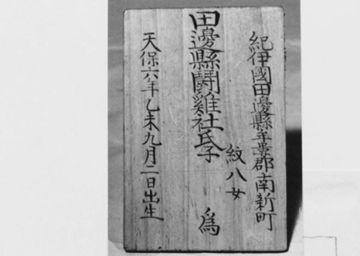 紀伊國田邊縣牟婁郡南新町
紋八女
為
田邊縣鬪雞社氏子
天保六年乙未九月二日出生